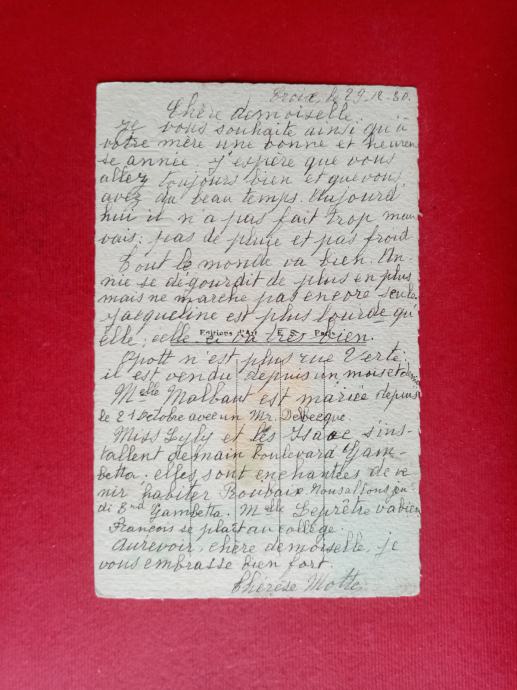 Croix, le 29-12-30.
Chère demoiselle
Je vous souhaite ainsi qu'à
votre mère une bonne et heureu
se année. J'espère que vous
allez toujours bien et que vous
avez du beau temps. Aujourd'
hui il n'a pas fait trop mau
vais; pas de pluie et pas froid
Tout le monde va bien. An-
nie se dégourdit de plus en plus
mais ne marche pas encore seule.
Jacqueline est plus lourde qu'
elle; celle-ci va très bien.
Editions d'Art E. S. Paris
n'est plus rue Verte;
il est vendu depuis un mois et demi
Melle Malbaut est mariée depuis
le 21 Octobre avec un Mr. Debecque.
Miss Lyly et les Isaac s'ins-
tallent demain boulevard Gam-
betta. elles sont enchantées de ve
nir habiter Roubaix. Nous allons jeu-
di Bvd Gambetta. Melle Leprêtre va bien
François se plaît au collège.
Au revoir, chère demoiselle, je
vous embrasse bien fort.
Thérèse Motte